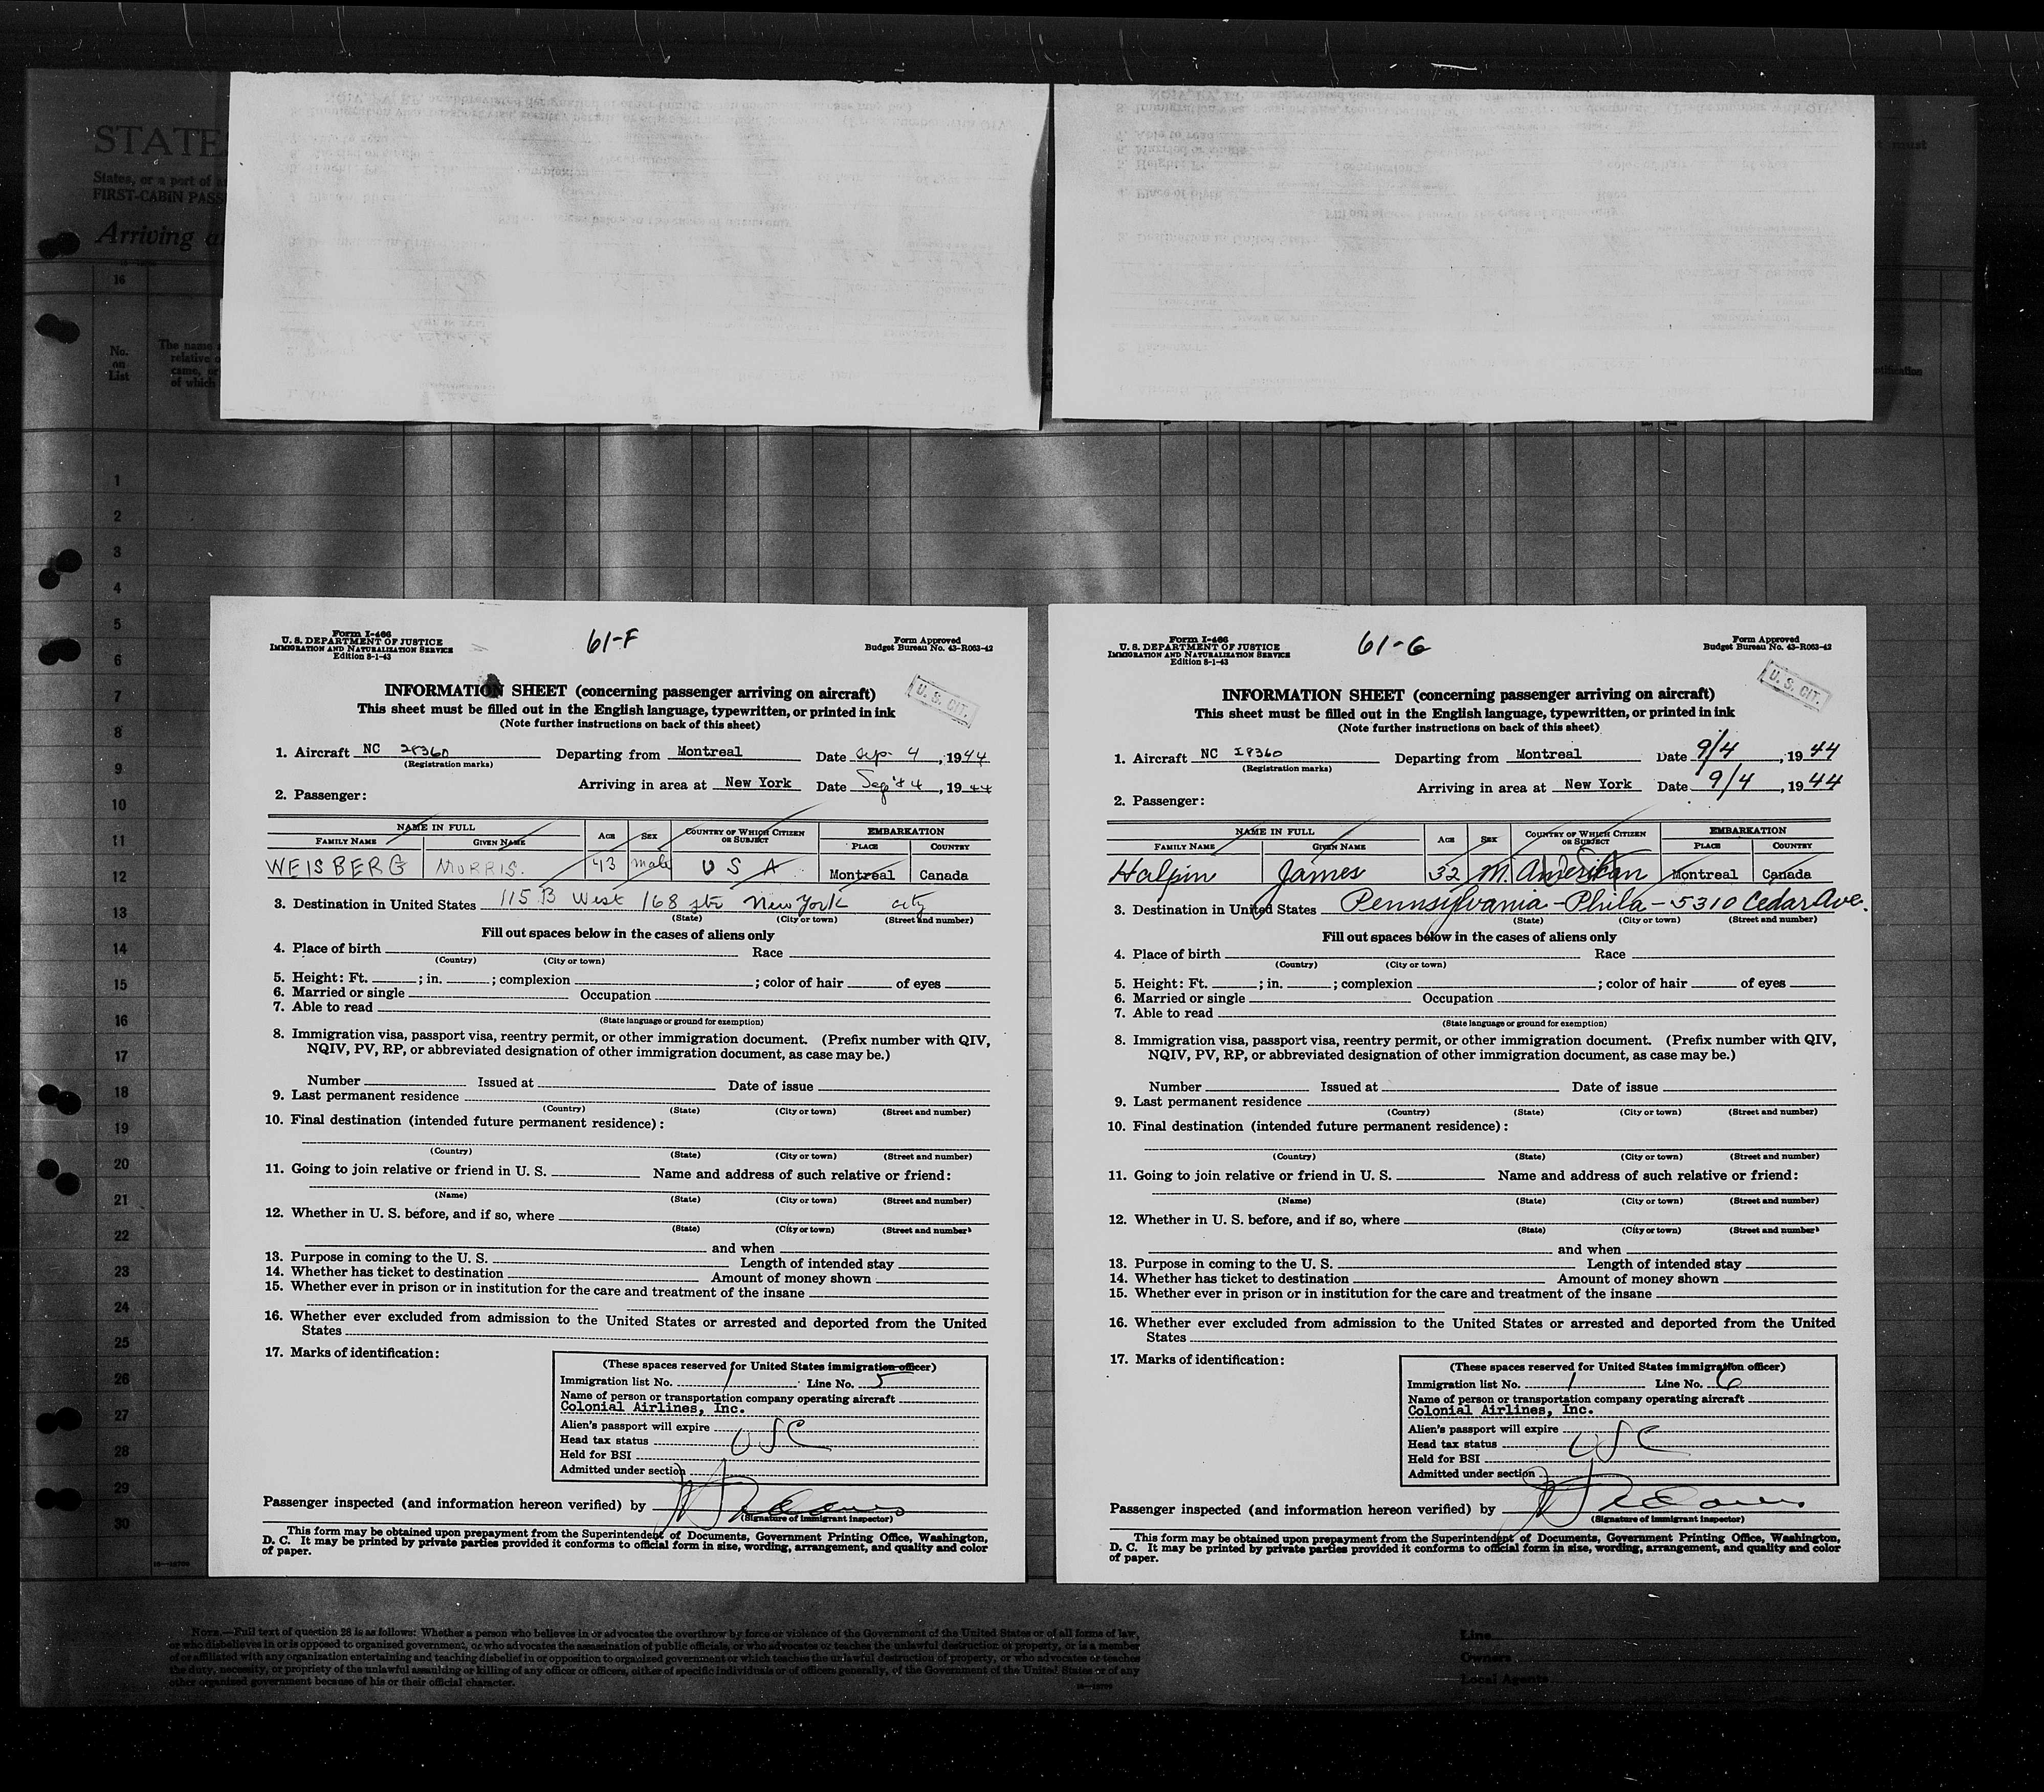 STATE
States, or a port of
FIRST-CABIN PASS
Arriving at
16
No.
on
List
The name
relative
came, or
of which
must
1
2
3
4
5
6
7
8
9
10
11
12
13
14
15
16
17
18
19
20
21
22
23
24
25
26
27
28
29
30
Form I-466
U. S. DEPARTMENT OF JUSTICE
IMMIGRATION AND NATURALIZATION SERVICE
Edition 8-1-43
61-F
Form Approved
Budget Bureau No. 43-R063-42
U. S. CIT.
INFORMATION SHEET (concerning passenger arriving on aircraft)
This sheet must be filled out in the English language, typewritten, or printed in ink
(Note further instructions on back of this sheet)
1. Aircraft NC 28360 Departing from Montreal Date Sep. 4, 1944
(Registration marks)
Arriving in area at New York Date Sept 4, 1944
2. Passenger:
NAME IN FULL AGE SEX COUNTRY OF WHICH CITIZEN OR SUBJECT EMBARKATION
FAMILY NAME GIVEN NAME PLACE COUNTRY
WEISBERG MORRIS. 43 male U S A Montreal Canada
3. Destination in United States 115 B West 168 str New York city
(State) (City or town) (Street and number)
Fill out spaces below in the cases of aliens only
4. Place of birth Race
(Country) (City or town)
5. Height: Ft. ; in. ; complexion ; color of hair of eyes
6. Married or single Occupation
7. Able to read
(State language or ground for exemption)
8. Immigration visa, passport visa, reentry permit, or other immigration document. (Prefix number with QIV,
NQIV, PV, RP, or abbreviated designation of other immigration document, as case may be.)
Number Issued at Date of issue
9. Last permanent residence
(Country) (State) (City or town) (Street and number)
10. Final destination (intended future permanent residence):
(Country) (State) (City or town) (Street and number)
11. Going to join relative or friend in U. S. Name and address of such relative or friend:
(Name) (State) (City or town) (Street and number)
12. Whether in U. S. before, and if so, where
(State) (City or town) (Street and number)
and when
13. Purpose in coming to the U. S. Length of intended stay
14. Whether has ticket to destination Amount of money shown
15. Whether ever in prison or in institution for the care and treatment of the insane
16. Whether ever excluded from admission to the United States or arrested and deported from the United
States
17. Marks of identification:
(These spaces reserved for United States immigration officer)
Immigration list No. 1 Line No. 5
Name of person or transportation company operating aircraft
Colonial Airlines, Inc.
Alien's passport will expire
Head tax status USC
Held for BSI
Admitted under section
Passenger inspected (and information hereon verified) by
(Signature of immigrant inspector)
This form may be obtained upon prepayment from the Superintendent of Documents, Government Printing Office, Washington,
D. C. It may be printed by private parties provided it conforms to official form in size, wording, arrangement, and quality and color
of paper.
Form I-466
U. S. DEPARTMENT OF JUSTICE
IMMIGRATION AND NATURALIZATION SERVICE
Edition 8-1-43
61-G
Form Approved
Budget Bureau No. 43-R063-42
U. S. CIT.
INFORMATION SHEET (concerning passenger arriving on aircraft)
This sheet must be filled out in the English language, typewritten, or printed in ink
(Note further instructions on back of this sheet)
1. Aircraft NC 28360 Departing from Montreal Date 9/4, 1944
(Registration marks)
Arriving in area at New York Date 9/4, 1944
2. Passenger:
NAME IN FULL AGE SEX COUNTRY OF WHICH CITIZEN OR SUBJECT EMBARKATION
FAMILY NAME GIVEN NAME PLACE COUNTRY
Halpin James 32 M. American Montreal Canada
3. Destination in United States Pennsylvania - Phila - 5310 Cedar Ave.
(State) (City or town) (Street and number)
Fill out spaces below in the cases of aliens only
4. Place of birth Race
(Country) (City or town)
5. Height: Ft. ; in. ; complexion ; color of hair of eyes
6. Married or single Occupation
7. Able to read
(State language or ground for exemption)
8. Immigration visa, passport visa, reentry permit, or other immigration document. (Prefix number with QIV,
NQIV, PV, RP, or abbreviated designation of other immigration document, as case may be.)
Number Issued at Date of issue
9. Last permanent residence
(Country) (State) (City or town) (Street and number)
10. Final destination (intended future permanent residence):
(Country) (State) (City or town) (Street and number)
11. Going to join relative or friend in U. S. Name and address of such relative or friend:
(Name) (State) (City or town) (Street and number)
12. Whether in U. S. before, and if so, where
(State) (City or town) (Street and number)
and when
13. Purpose in coming to the U. S. Length of intended stay
14. Whether has ticket to destination Amount of money shown
15. Whether ever in prison or in institution for the care and treatment of the insane
16. Whether ever excluded from admission to the United States or arrested and deported from the United
States
17. Marks of identification:
(These spaces reserved for United States immigration officer)
Immigration list No. 1 Line No. 6
Name of person or transportation company operating aircraft
Colonial Airlines, Inc.
Alien's passport will expire
Head tax status USC
Held for BSI
Admitted under section
Passenger inspected (and information hereon verified) by
(Signature of immigrant inspector)
This form may be obtained upon prepayment from the Superintendent of Documents, Government Printing Office, Washington,
D. C. It may be printed by private parties provided it conforms to official form in size, wording, arrangement, and quality and color
of paper.
NOTE.—Full text of question 28 is as follows: Whether a person who believes in or advocates the overthrow by force or violence of the Government of the United States or of all forms of law,
or who disbelieves in or is opposed to organized government, or who advocates the assassination of public officials, or who advocates or teaches the unlawful destruction of property, or is a member
of or affiliated with any organization entertaining and teaching disbelief in or opposition to organized government or which teaches the unlawful destruction of property, or who advocates or teaches
the duty, necessity, or propriety of the unlawful assaulting or killing of any officer or officers, either of specific individuals or of officers generally, of the Government of the United States or of any
other organized government because of his or their official character.
Line
Owners
Local Agents